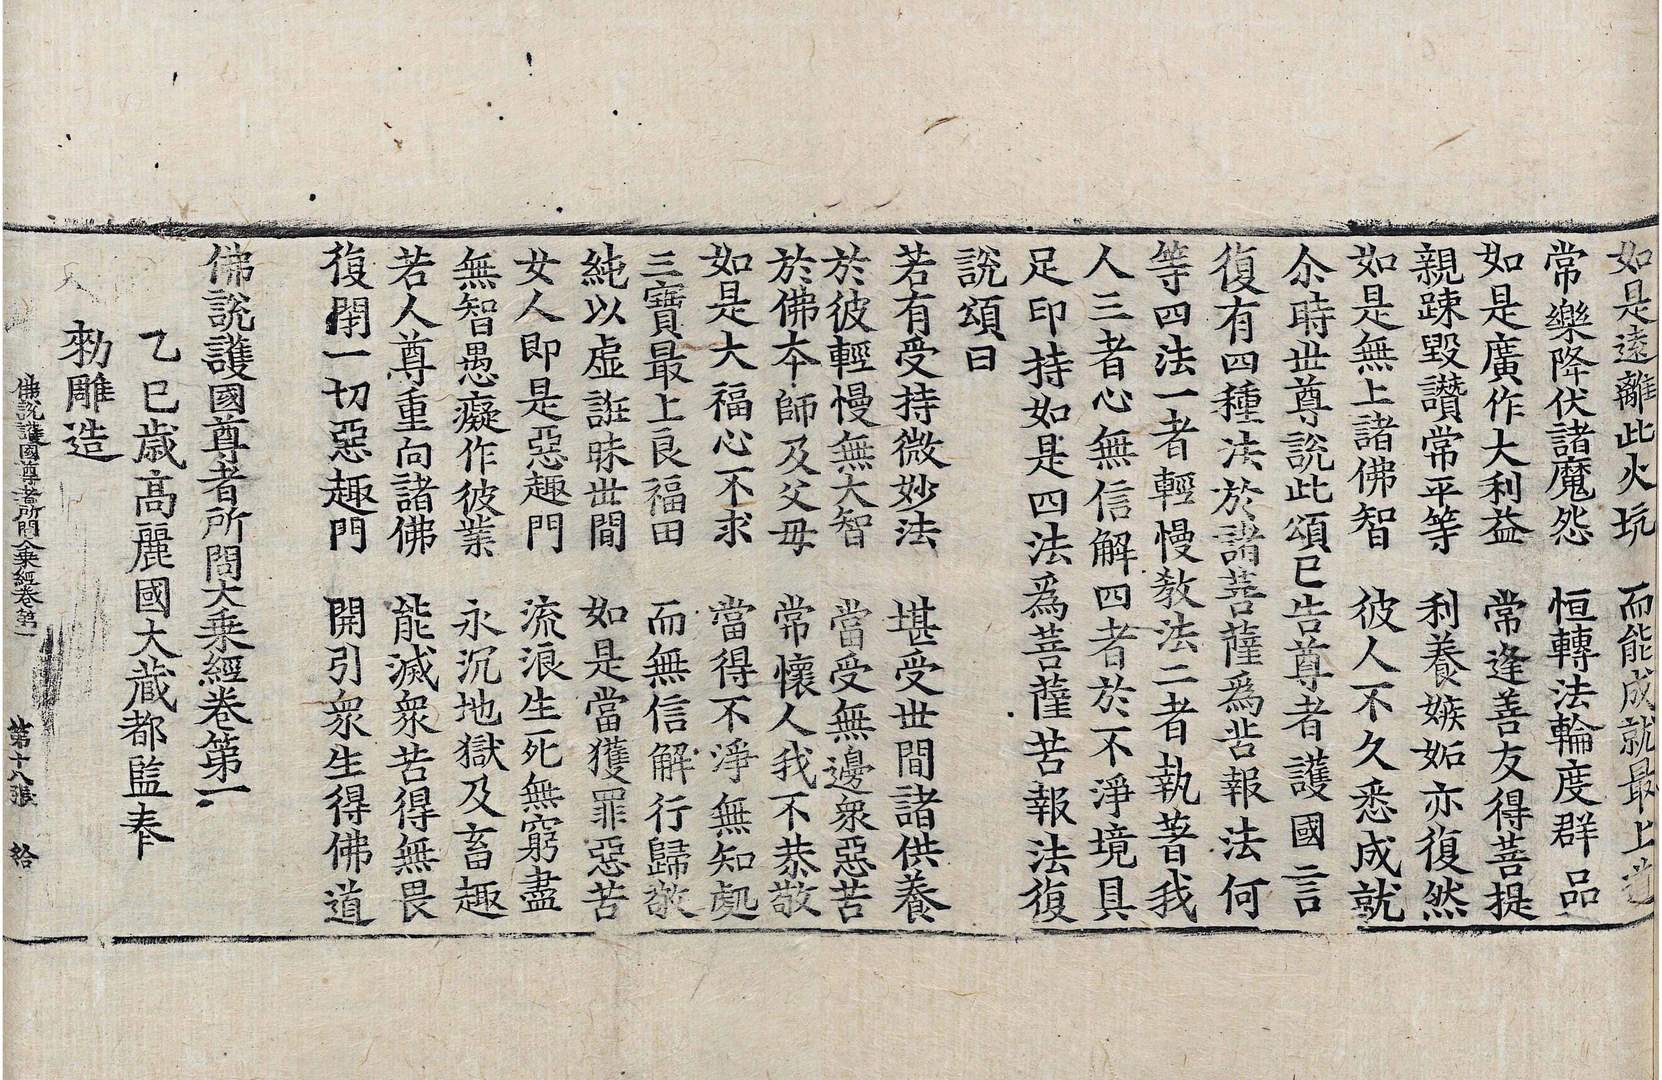 如是遠離此火坑　而能成就最上道
常樂降伏諸魔怨　恒轉法輪度群品
如是廣作大利益　常逢善友得菩提
親踈毀讚常平等　利養嫉妬亦復然
如是無上諸佛智　彼人不久悉成就
尒時世尊說此頌已告尊者護國言
復有四種法於諸菩薩爲苦報法何
等四法一者輕慢教法二者執著我
人三者心無信解四者於不淨境具
足印持如是四法爲菩薩苦報法復
說頌曰
若有受持微妙法　堪受世間諸供養
於彼輕慢無大智　當受無邊衆惡苦
於佛本師及父母　常懷人我不恭敬
如是大福心不求　當得不淨無知處
三寶最上良福田　而無信解行歸敬
純以虛誑昧世間　如是當獲罪惡苦
女人即是惡趣門　流浪生死無窮盡
無智愚癡作彼業　永沉地獄及畜趣
若人尊重向諸佛　能滅衆苦得無畏
復閉一切惡趣門　開引衆生得佛道
佛說護國尊者所問大乘經卷第一
乙巳歲高麗國大藏都監奉
勑雕造
佛說護國尊者所問大乘經卷第一　第十八張　給